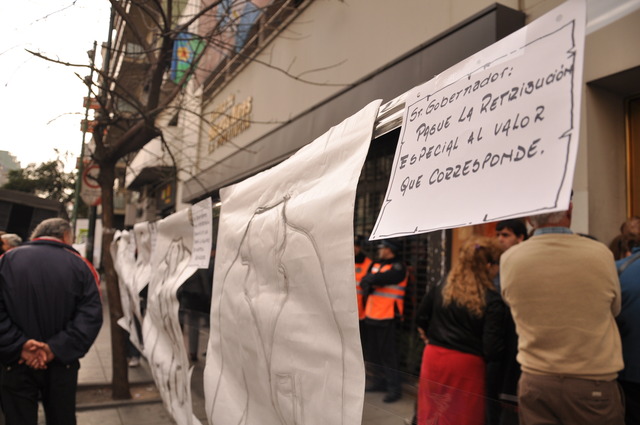 Sr. Gobernador:
PAGUE LA RETRIBUCIÓN
ESPECIAL AL VALOR
QUE CORRESPONDE.